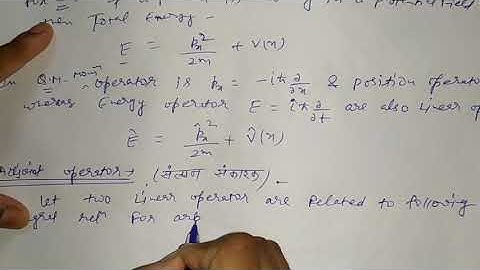 in a potential field
then Total Energy -
E = pₓ²/2m + V(x)
Q.M. mom operator is pₓ = -iħ ∂/∂x & position operato
whereas Energy operator E = iħ ∂/∂t are also Linear op
Ê = p̂ₓ²/2m + V̂(x)
Adjoint operator → (संलग्न संकारक) -
Let two Linear operator are related to following
relⁿ For